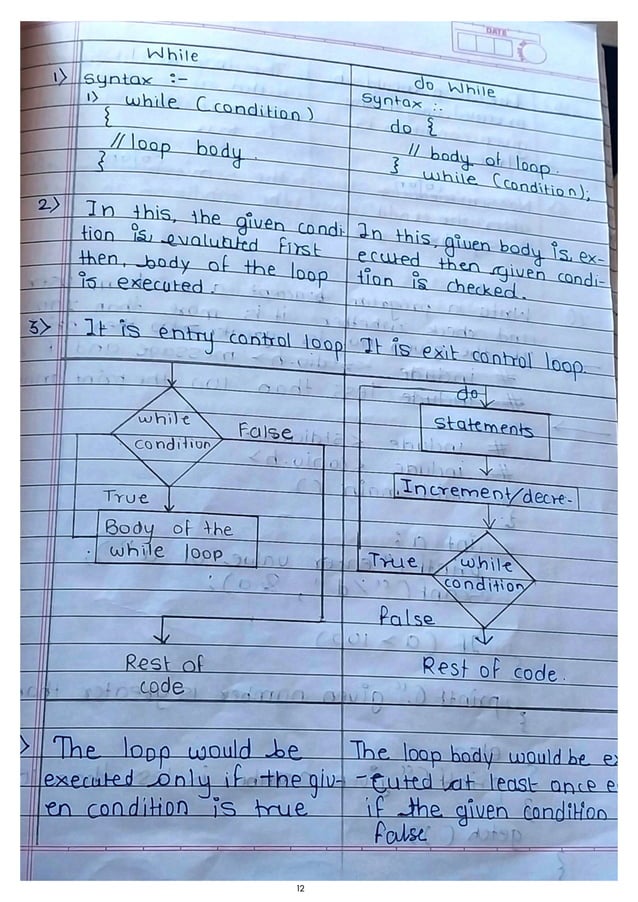 DATE
While
do While
1) syntax :-
1) while (condition)
{
// loop body.
}
syntax :-
do {
// body of loop.
} while (condition);
2) In this, the given condi-
tion is evaluated first
then, body of the loop
is executed.
In this, given body is ex-
ecuted then given condi-
tion is checked.
3) It is entry control loop
It is exit control loop.
while
condition
False
True
Body of the
while loop
Rest of
code
do
statements
Increment/decre-
while
condition
True
false
Rest of code.
) The loop would be
executed only if the giv-
en condition is true
The loop body would be ex
-ecuted at least once e
if the given condition
false
12